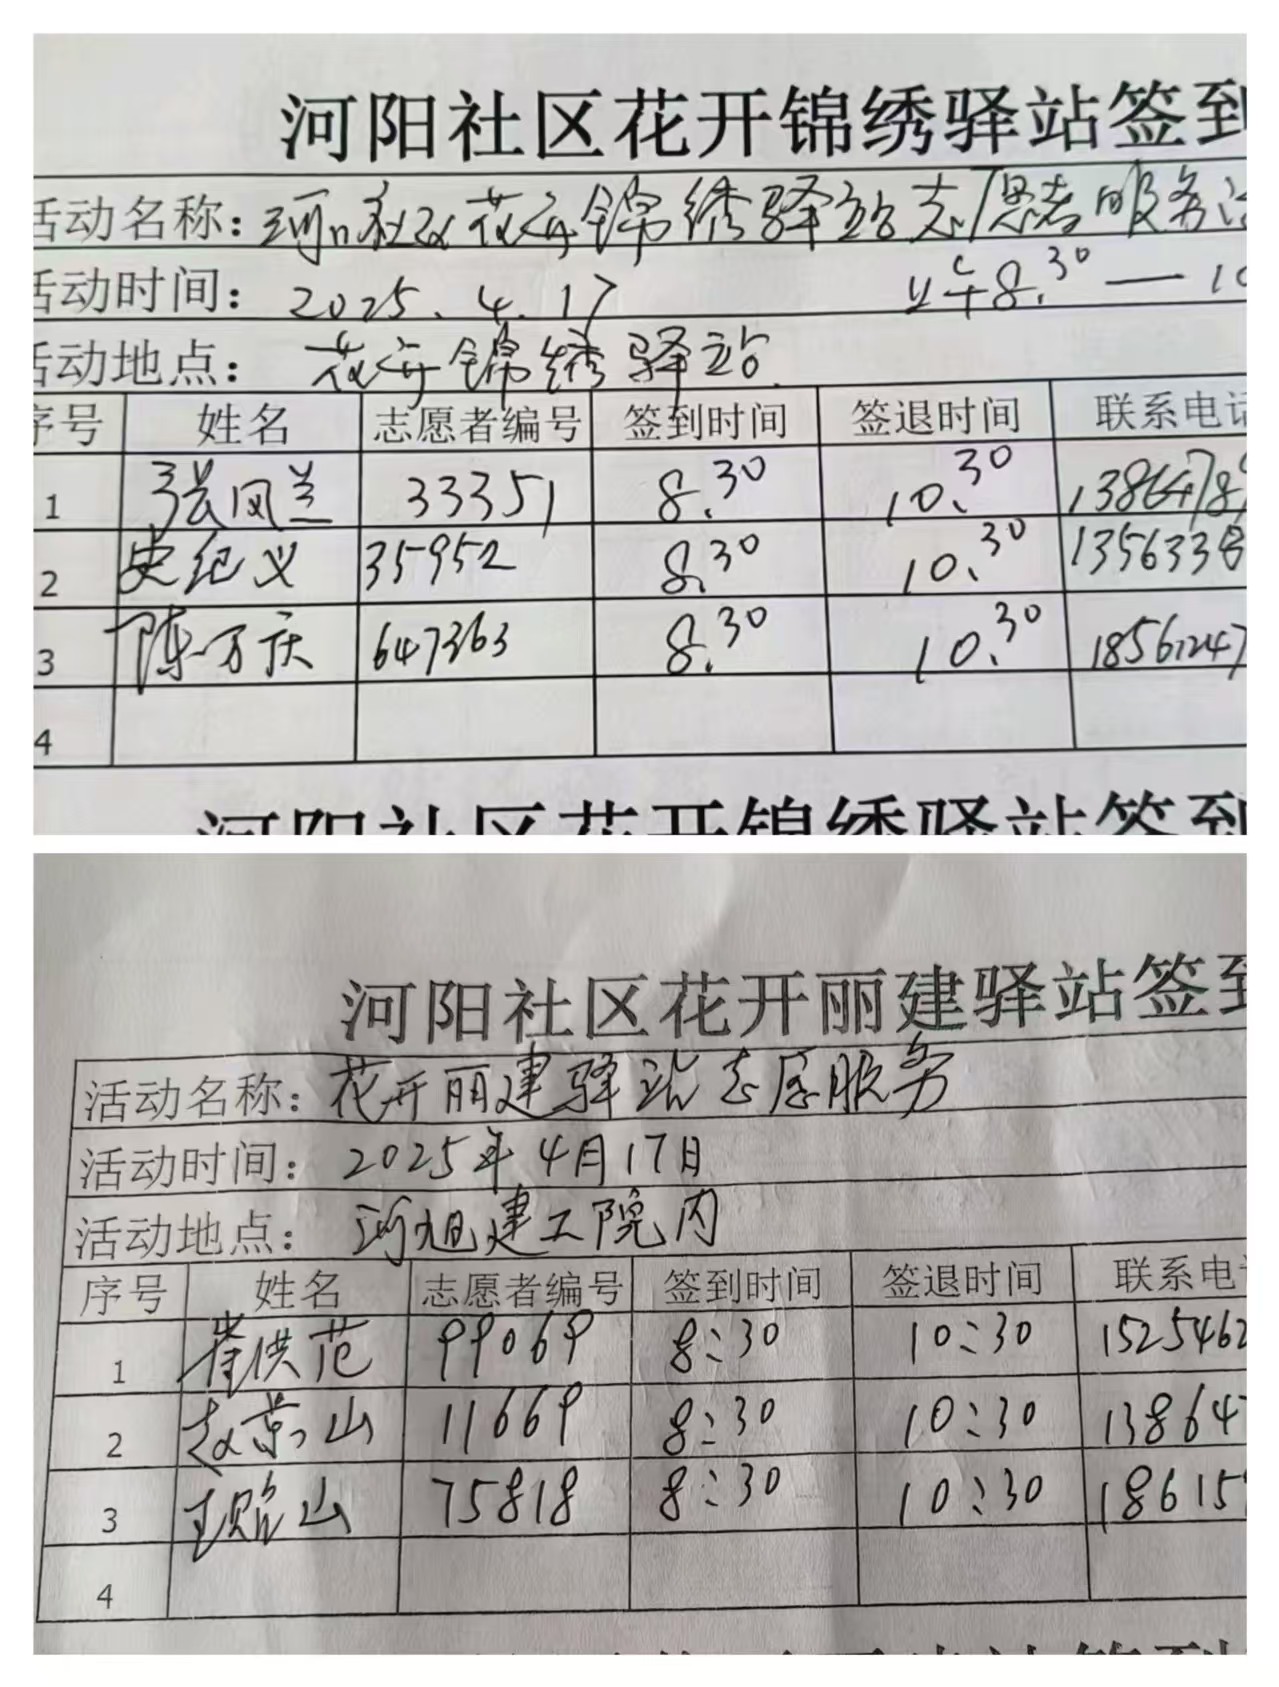 河阳社区花开锦绣驿站签到
活动名称：河阳社区花开锦绣驿站志愿者服务活
活动时间：2025.4.17 上午8.30—10
活动地点：花开锦绣驿站
序号 姓名 志愿者编号 签到时间 签退时间 联系电话
1 张凤兰 33351 8.30 10.30 13864789
2 史纪义 35952 8.30 10.30 1356338
3 陈万庆 647363 8.30 10.30 18561247
4
河阳社区花开锦绣驿站签到
河阳社区花开丽建驿站签到
活动名称：花开丽建驿站志愿服务
活动时间：2025年4月17日
活动地点：河旭建工院内
序号 姓名 志愿者编号 签到时间 签退时间 联系电
1 洪范 99069 8:30 10:30 1525462
2 赵京山 11669 8:30 10:30 138647
3 王贻山 75818 8:30 10:30 18615
4